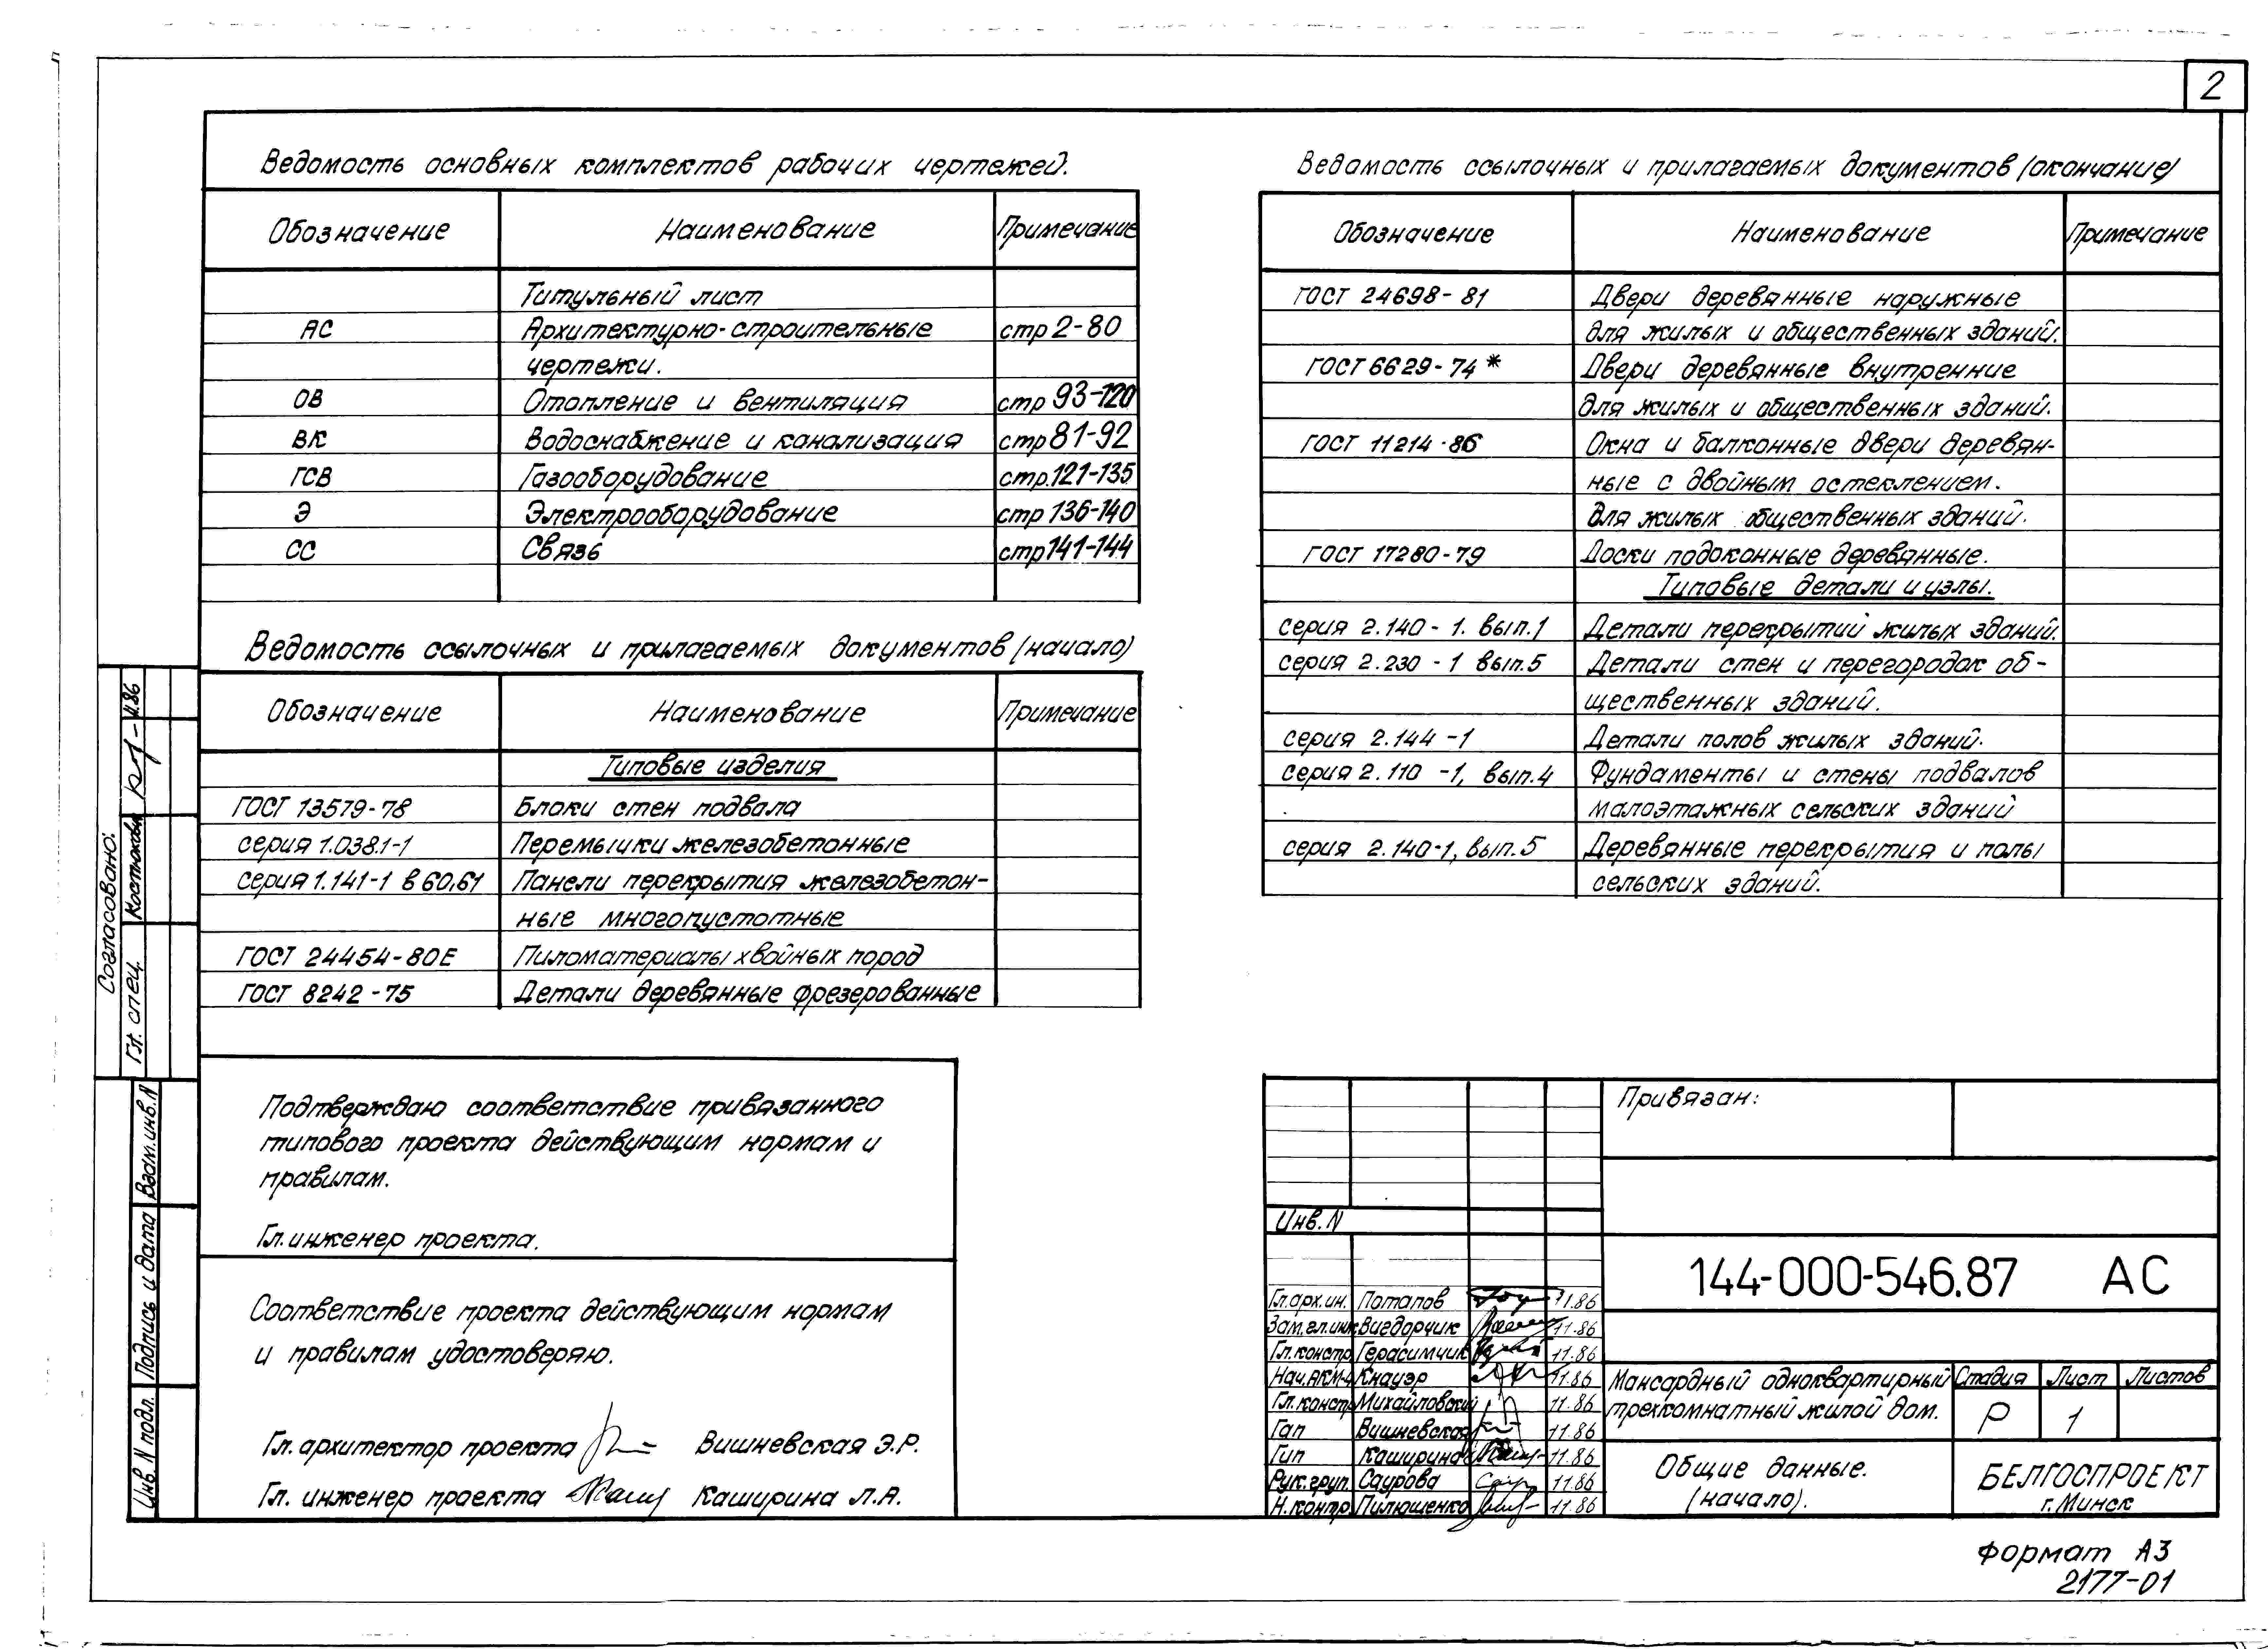 2
Ведомость основных комплектов рабочих чертежей.
Обозначение Наименование Примечание
Титульный лист
АС Архитектурно-строительные стр 2-80
чертежи.
ОВ Отопление и вентиляция стр 93-120
ВК Водоснабжение и канализация стр 81-92
ГСВ Газооборудование стр. 121-135
Э Электрооборудование стр 136-140
СС Связь стр 141-144
Ведомость ссылочных и прилагаемых документов (начало)
Обозначение Наименование Примечание
Типовые изделия
ГОСТ 13579-78 Блоки стен подвала
серия 1.038.1-1 Перемычки железобетонные
серия 1.141-1 в 60,61 Панели перекрытия железобетон-
ные многопустотные
ГОСТ 24454-80Е Пиломатериалы хвойных пород
ГОСТ 8242-75 Детали деревянные фрезерованные
Ведомость ссылочных и прилагаемых документов (окончание)
Обозначение Наименование Примечание
ГОСТ 24698-81 Двери деревянные наружные
для жилых и общественных зданий.
ГОСТ 6629-74* Двери деревянные внутренние
для жилых и общественных зданий.
ГОСТ 11214-86 Окна и балконные двери деревян-
ные с двойным остеклением.
для жилых общественных зданий.
ГОСТ 17280-79 Доски подоконные деревянные.
Типовые детали и узлы.
серия 2.140-1. вып.1 Детали перекрытий жилых зданий.
серия 2.230-1 вып.5 Детали стен и перегородок об-
щественных зданий.
серия 2.144-1 Детали полов жилых зданий.
серия 2.110-1, вып.4 Фундаменты и стены подвалов
малоэтажных сельских зданий
серия 2.140-1, вып.5 Деревянные перекрытия и полы
сельских зданий.
Согласовано:
Гл. спец. Костюкович 11.86
Взам. инв. N
Подпись и дата
Инв. N подл.
Подтверждаю соответствие привязанного
типового проекта действующим нормам и
правилам.
Гл. инженер проекта.
Соответствие проекта действующим нормам
и правилам удостоверяю.
Гл. архитектор проекта Вишневская Э.Р.
Гл. инженер проекта Каширина Л.А.
Привязан:
Инв. N
144-000-546.87 АС
Гл.арх.ин. Потапов 11.86
Зам.гл.инж Вигдорчик 11.86
Гл.констр Герасимчик 11.86
Нач.АКМ-4 Кнауэр 11.86
Гл.констр Михайловский 11.86
Гап Вишневская 11.86
Гип Каширина 11.86
Рук.груп. Саурова 11.86
Н.контр Пилющенко 11.86
Мансардный одноквартирный
трехкомнатный жилой дом.
Стадия Лист Листов
Р 1
Общие данные.
(начало).
БЕЛГОСПРОЕКТ
г. Минск
Формат А3
2177-01